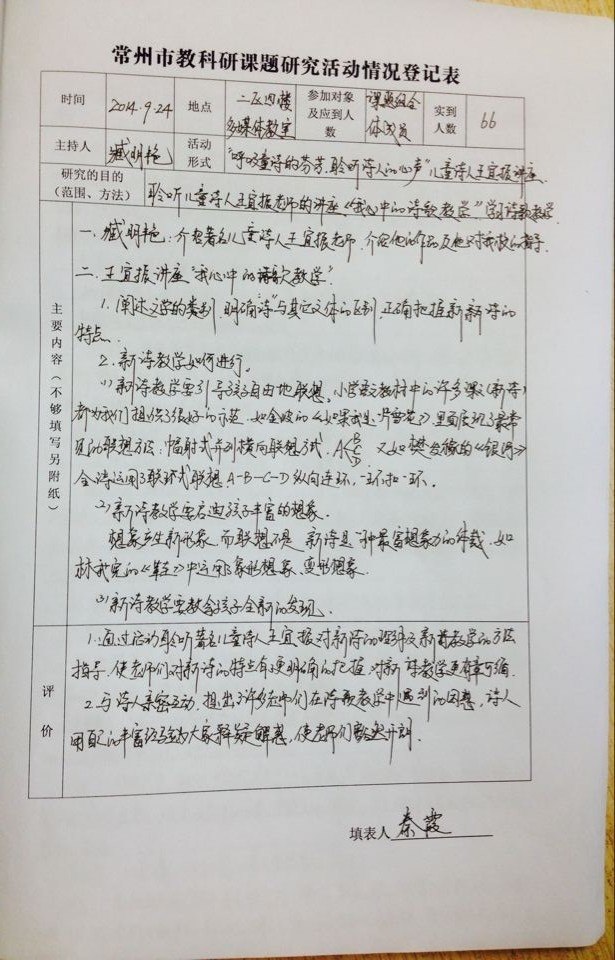 常州市教科研课题研究活动情况登记表
时间 2014.9.24 地点 二区四楼多媒体教室 参加对象及应到人数 课题组全体成员 实到人数 66
主持人 臧明艳 活动形式 "呼吸童诗的芬芳,聆听诗人的心声"儿童诗人王宜振讲座.
研究的目的(范围、方法) 聆听儿童诗人王宜振老师的讲座《我心中的诗歌教学》,学习诗歌教学.
主要内容(不够填写另附纸)
一.臧明艳:介绍著名儿童诗人王宜振老师,介绍他的作品及他对我校的指导.
二.王宜振讲座"我心中的诗歌教学".
1.阐述文学的类别,明确"诗"与其它文体的区别,正确把握新诗的
特点.
2.新诗教学如何进行.
(1)新诗教学要引导孩子自由地联想.小学语文教材中的许多课文(新诗)
都为我们提供了很好的示范.如金波的《如果我是一片雪花》,里面展现了最常
见的联想方法:幅射式并列横向联想方式.A<B C D 又如樊发稼的《银河》
全诗运用了联环式联想A-B-C-D纵向连环,一环扣一环.
(2)新诗教学要启迪孩子丰富的想象.
想象产生新形象,而联想不是.新诗是一种最富想象力的体裁.如
林武宪的《鞋》中运用了象形想象、变形想象.
(3)新诗教学要教会孩子全新的发现.
评价
1.通过活动聆听著名儿童诗人王宜振对新诗的理解及新诗教学的方法
指导,使老师们对新诗的特点有更明确的把握,对新诗教学更有章可循.
2.与诗人亲密互动,提出了许多老师们在诗歌教学中遇到的困惑,诗人
用自己的丰富经验为大家释疑解惑,使老师们豁然开朗.
填表人 秦霞